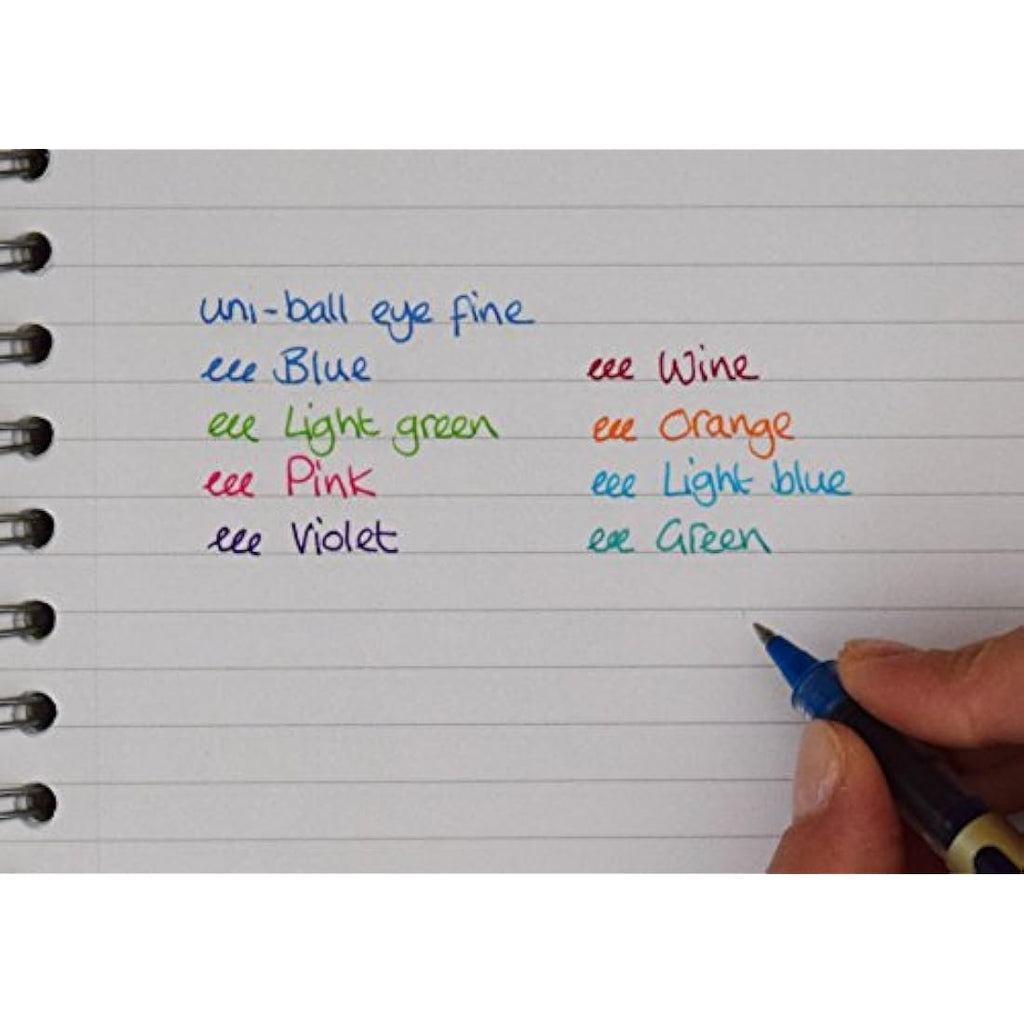 uni-ball eye fine
eee Blue
eee Light green
eee Pink
eee Violet
eee Wine
eee Orange
eee Light blue
eee Green